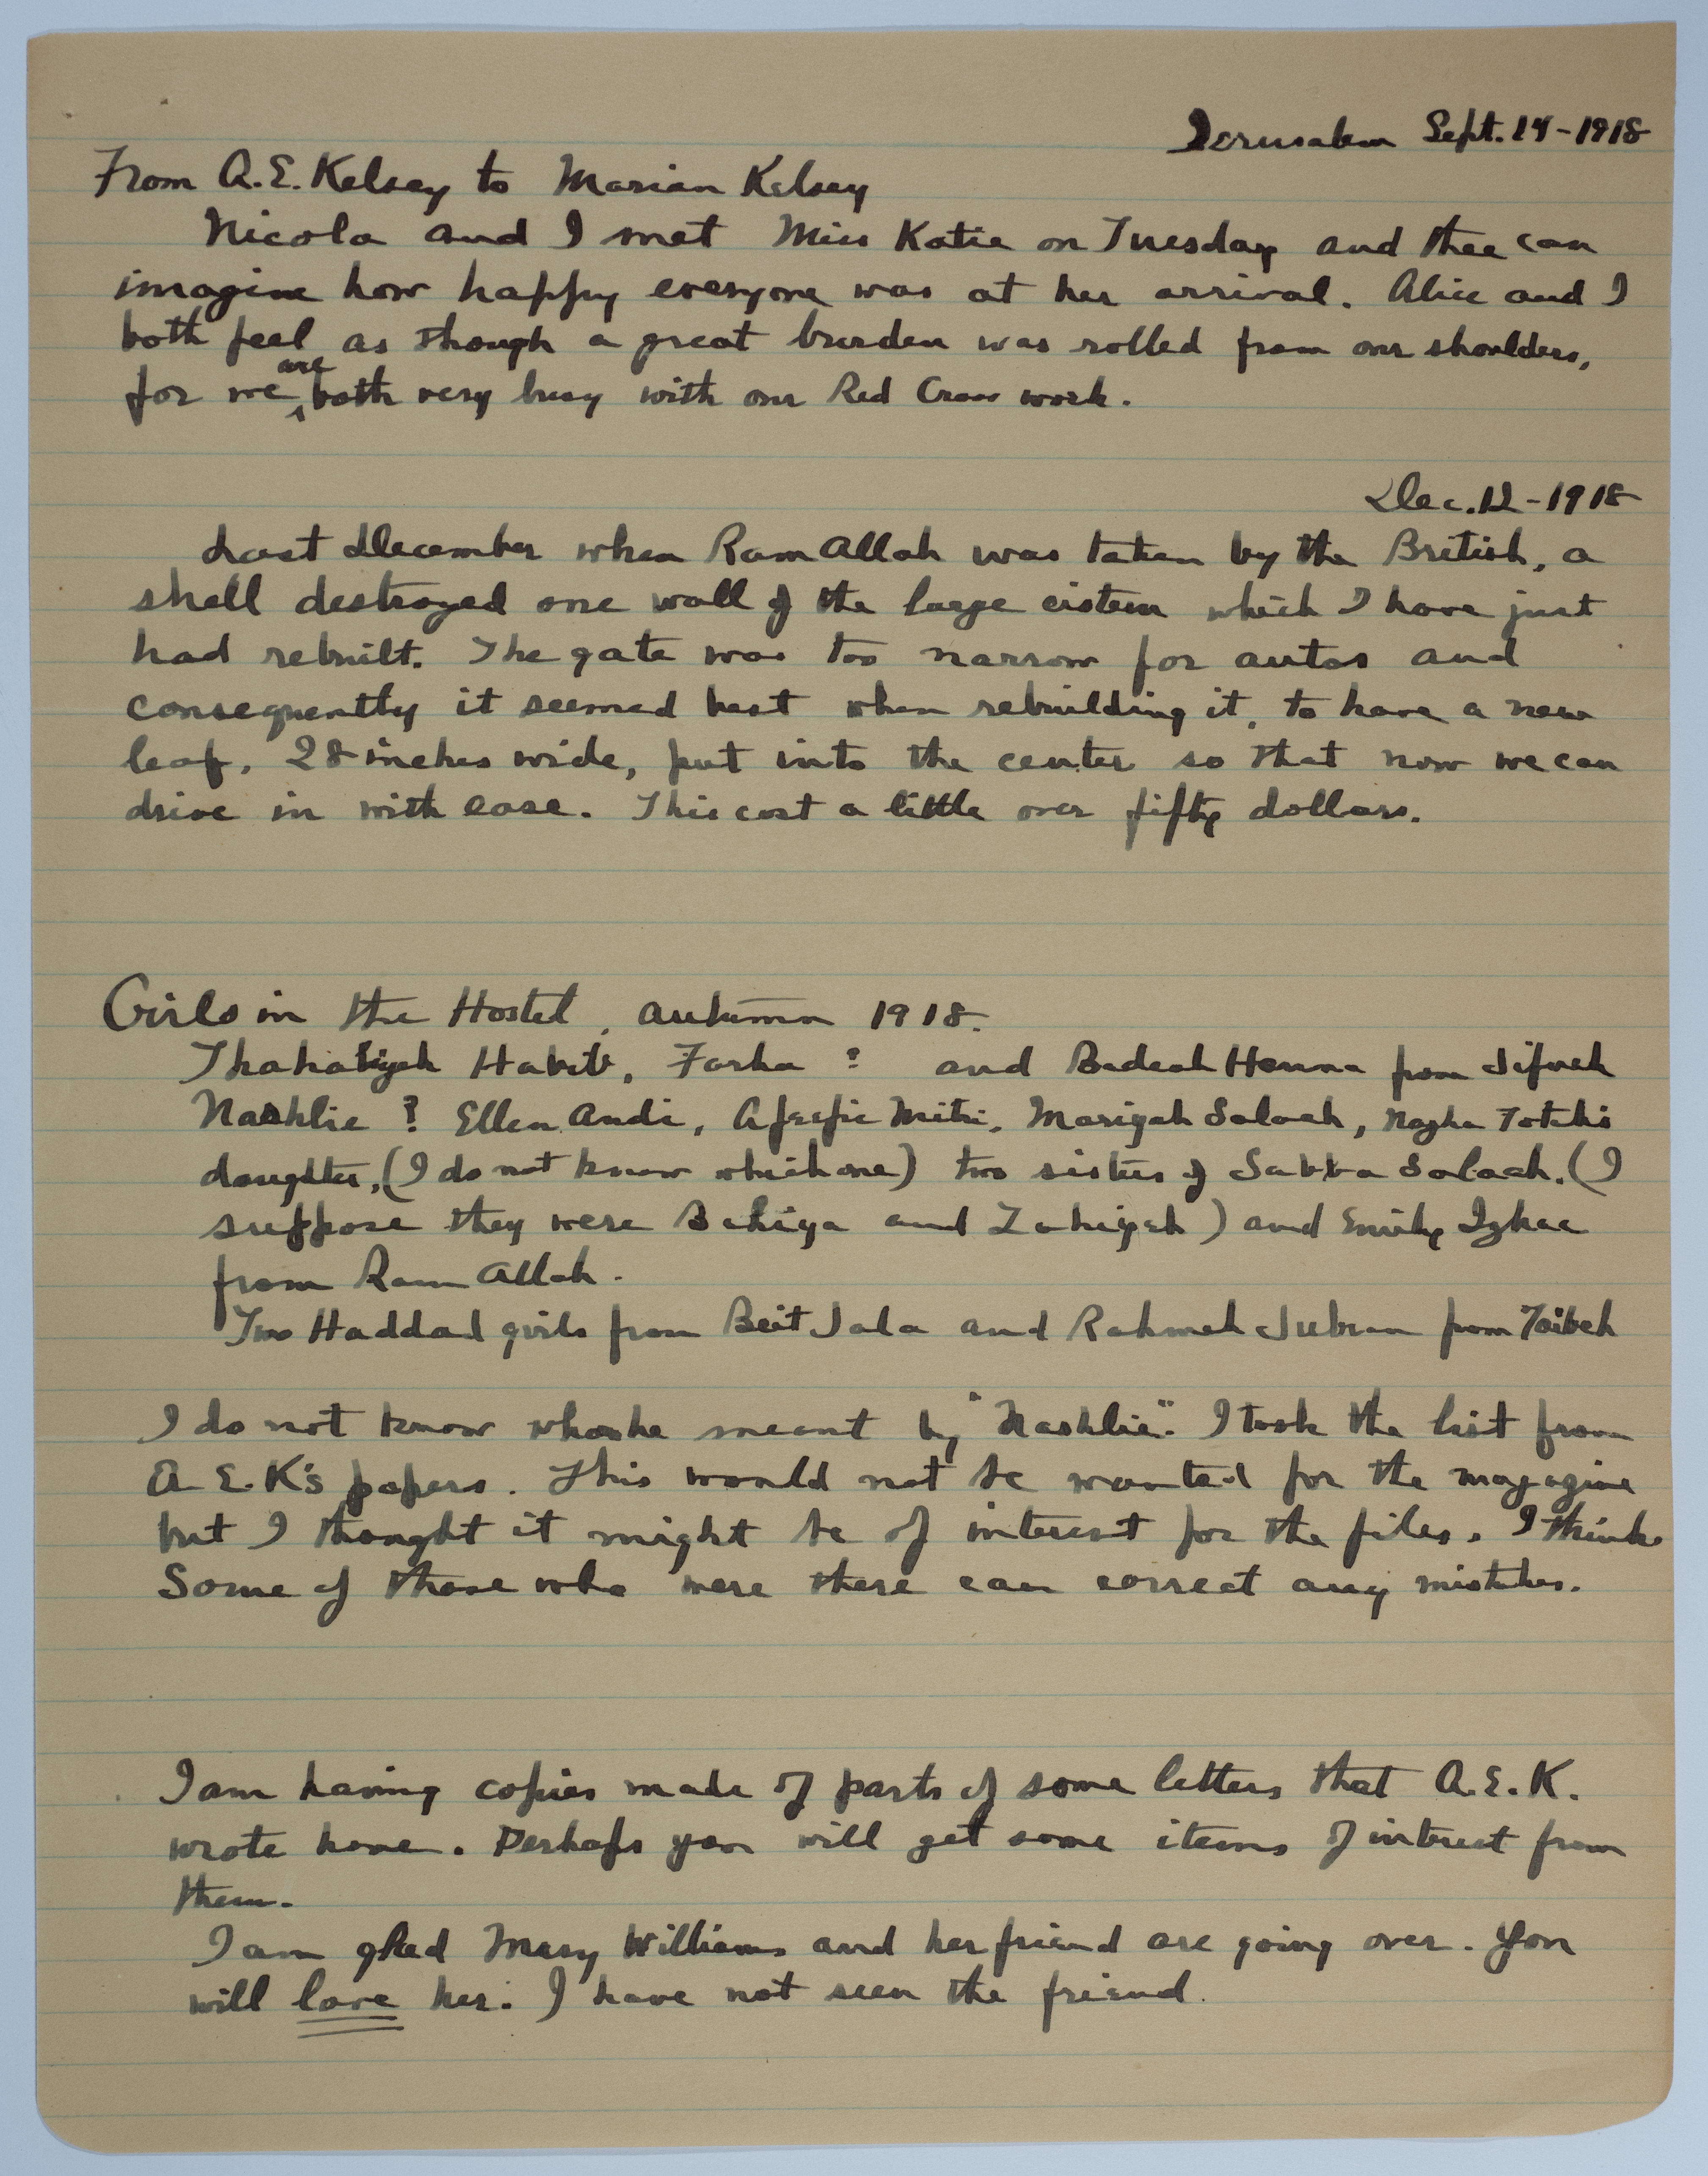 Jerusalem Sept. 14-1918
From A.E. Kelsey to Marian Kelsey
Nicola and I met Miss Katie on Tuesday and thee can
imagine how happy everyone was at her arrival. Alice and I
both feel as though a great burden was rolled from our shoulders,
for we are both very busy with our Red Cross work.
Dec. 12-1918
Last December when Ram Allah was taken by the British, a
shell destroyed one wall of the large cistern which I have just
had rebuilt. The gate was too narrow for autos and
consequently it seemed best when rebuilding it, to have a new
leaf, 28 inches wide, put into the center so that now we can
drive in with ease. This cost a little over fifty dollars.
Girls in the Hostel, autumn 1918.
Habib, Farha ? and Badeah Henna from Jifneh
Nashlie ? Ellen Audi, Afeefie Mitri, Mariyah Salaah, Totahs
daughter, (I do not know which one) two sisters of Sabba Salaah. (I
suppose they were Bahiya and Zahiyeh) and Emily
from Ram Allah.
Two Haddad girls from Beit Jala and Rahmeh Jubran from Taibeh
I do not know who he meant by "Nashlie". I took the list from
A.E.K's papers. This would not be wanted for the magazine
but I thought it might be of interest for the files. I think
Some of those who were there can correct any mistakes.
I am having copies made of parts of some letters that A.E.K.
wrote home. Perhaps you will get some items of interest from
them.
I am glad Mary Williams and her friend are going over. You
will love her. I have not seen the friend.